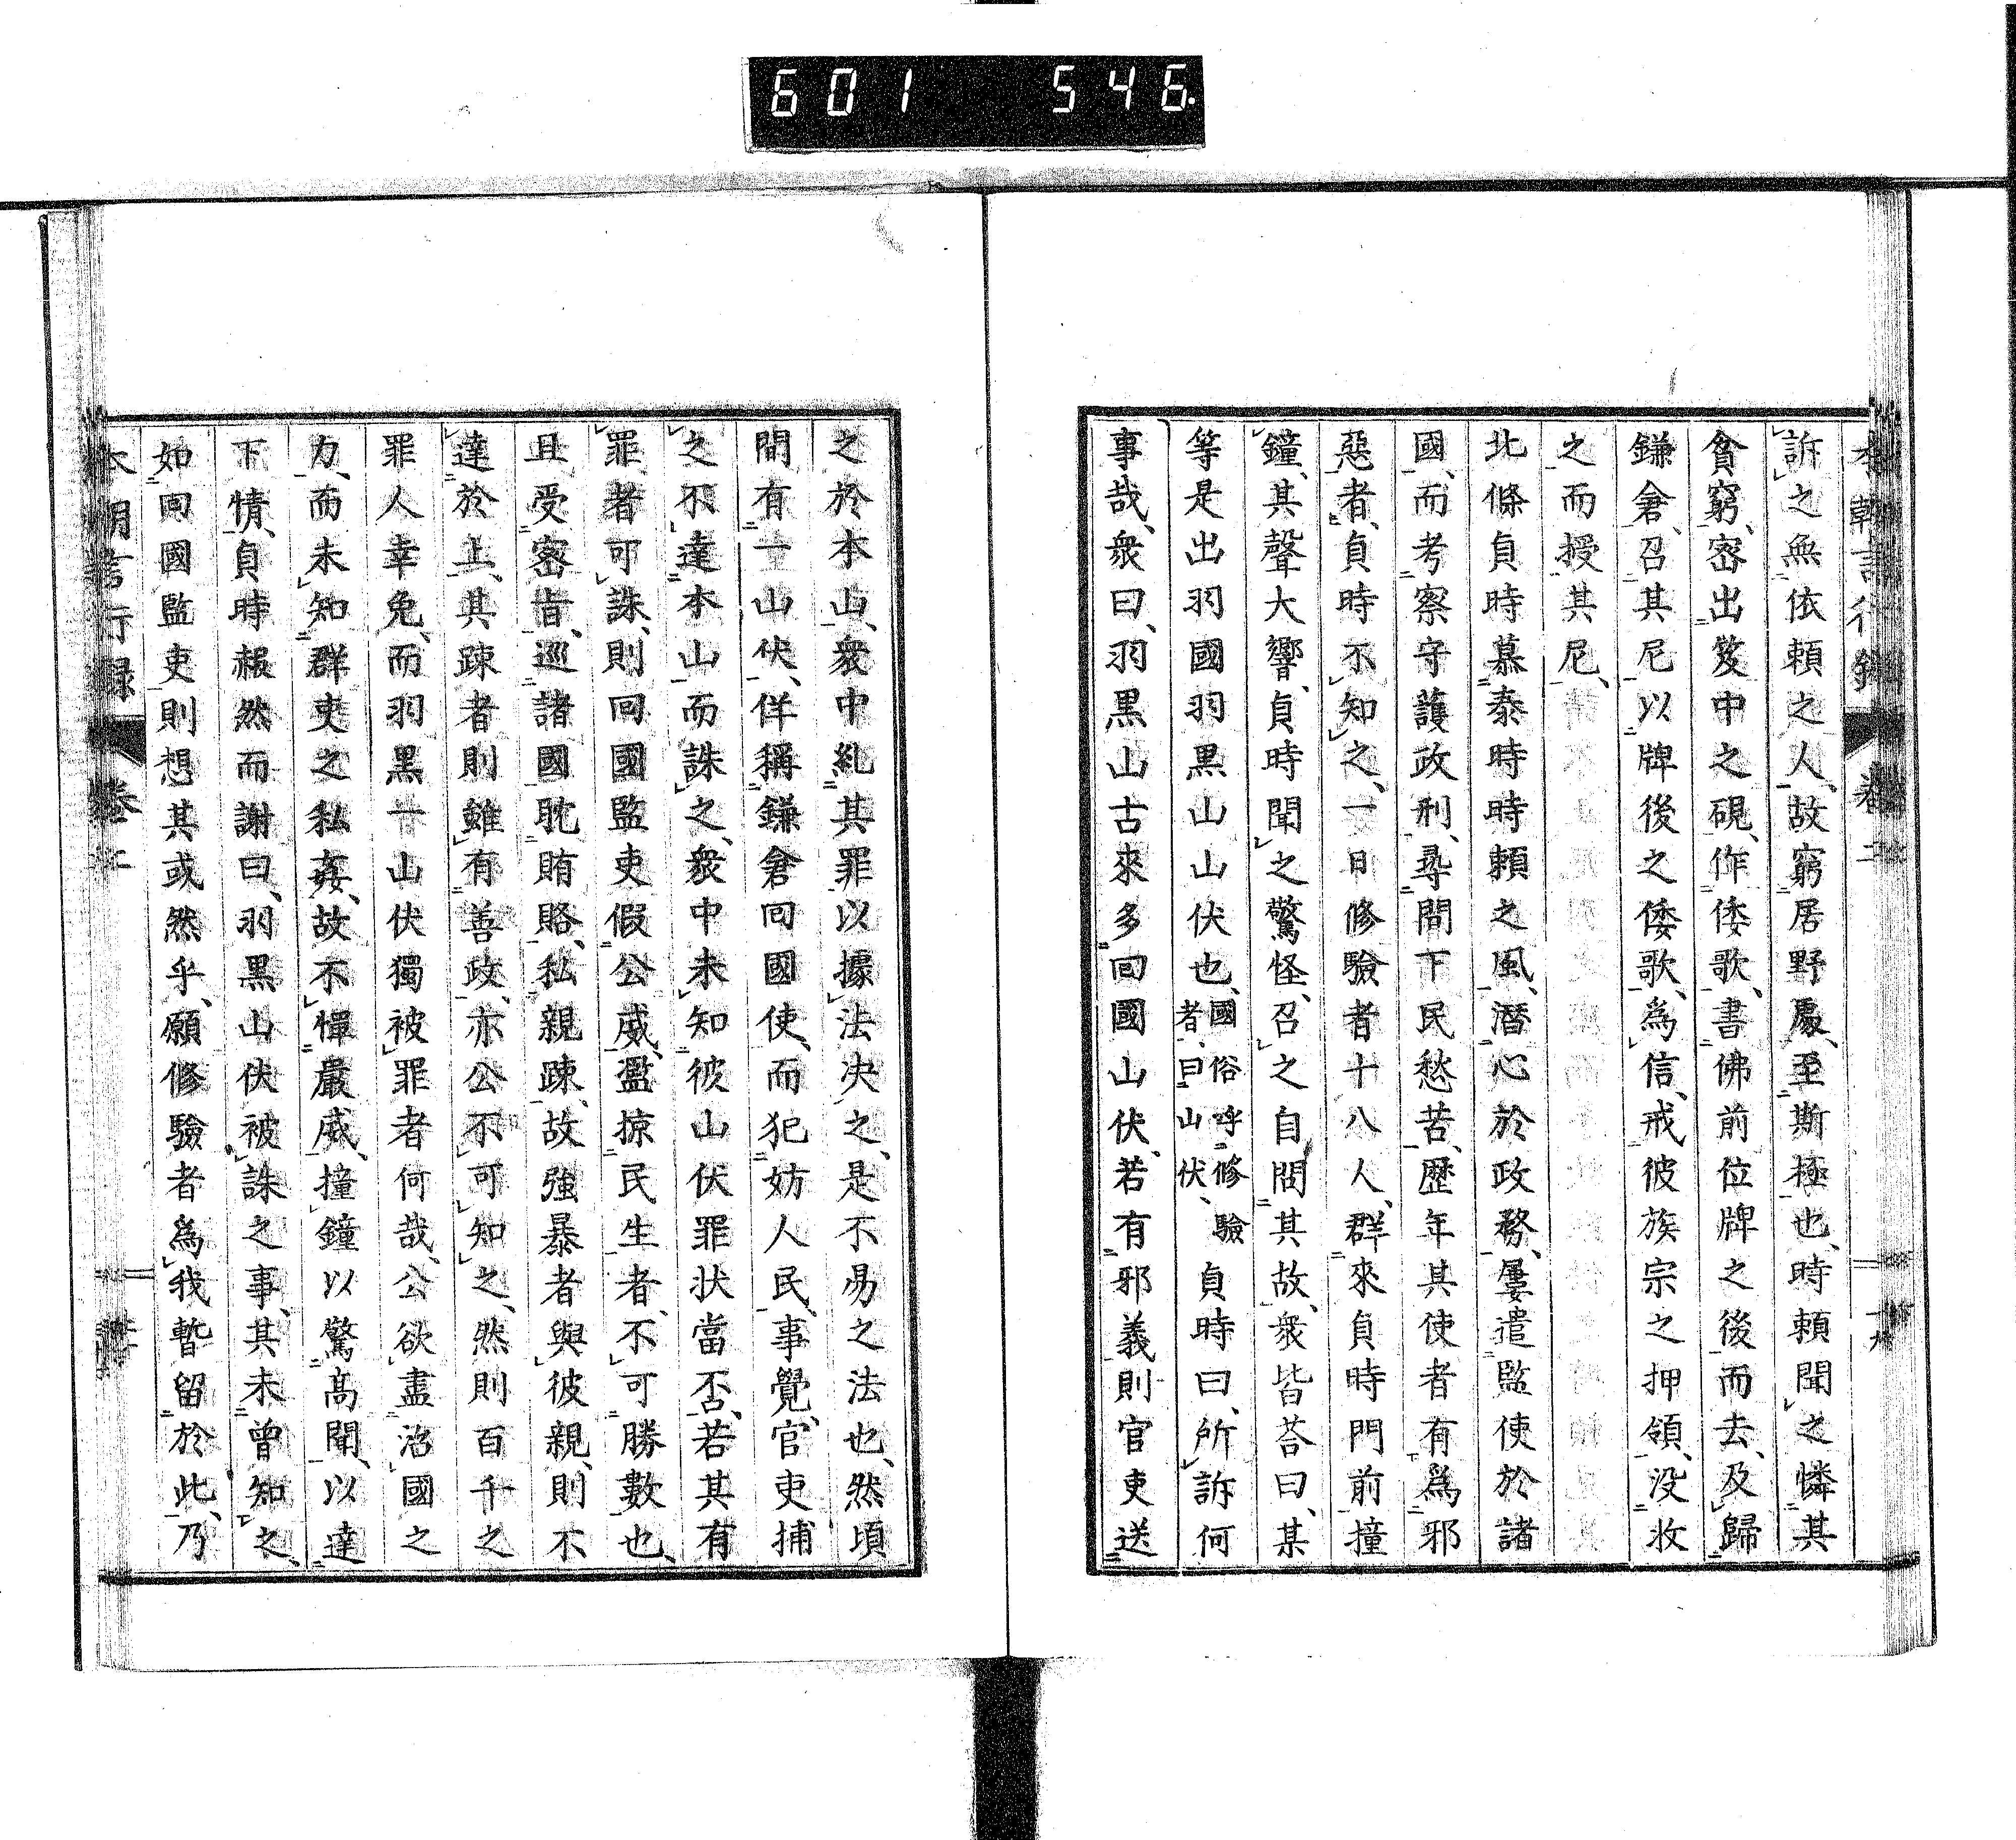 601 546.
本朝言行録 卷二 十九
訴之無依頼之人、故窮居野處、至斯極也、時頼聞之憐其
貧窮、密出笈中之硯、作倭歌、書佛前位牌之後而去、及歸
鎌倉、召其尼以牌後之倭歌、為信、戒彼族宗之押領、没收
之而授其尼、
北條貞時慕泰時時頼之風、潛心於政務、屢遣監使於諸
國、而考察守護政刑、尋問下民愁苦、歴年其使者有爲邪
惡者、貞時不知之、一日修驗者十八人、群來貞時門前撞
鐘、其聲大響、貞時聞之驚怪、召之自問其故、衆皆荅曰、某
等是出羽國羽黒山山伏也、國俗呼修驗者、曰山伏、貞時曰、所訴何
事哉、衆曰、羽黒山古來多回國山伏、若有邪義則官吏送
之於本山、衆中糺其罪以據法决之、是不易之法也、然頃
間有一山伏、佯稱鎌倉回國使、而犯妨人民、事覺、官吏捕
之不達本山而誅之、衆中未知彼山伏罪状當否、若其有
罪者可誅、則回國監吏假公威、盈掠民生者、不可勝數也、
且受密旨、巡諸國耽賄賂、私親疎、故強暴者與彼親、則不
達於上、其疎者則雖有善政、亦公不可知之、然則百千之
罪人幸免、而羽黒一山伏獨被罪者何哉、公欲盡治國之
力、而未知群吏之私姦、故不憚嚴威、撞鐘以驚高聞、以達
下情、貞時赧然而謝曰、羽黒山伏被誅之事、其未曾知之、
如回國監吏則想其或然乎、願修驗者爲我暫留於此、乃
本朝言行録 卷二